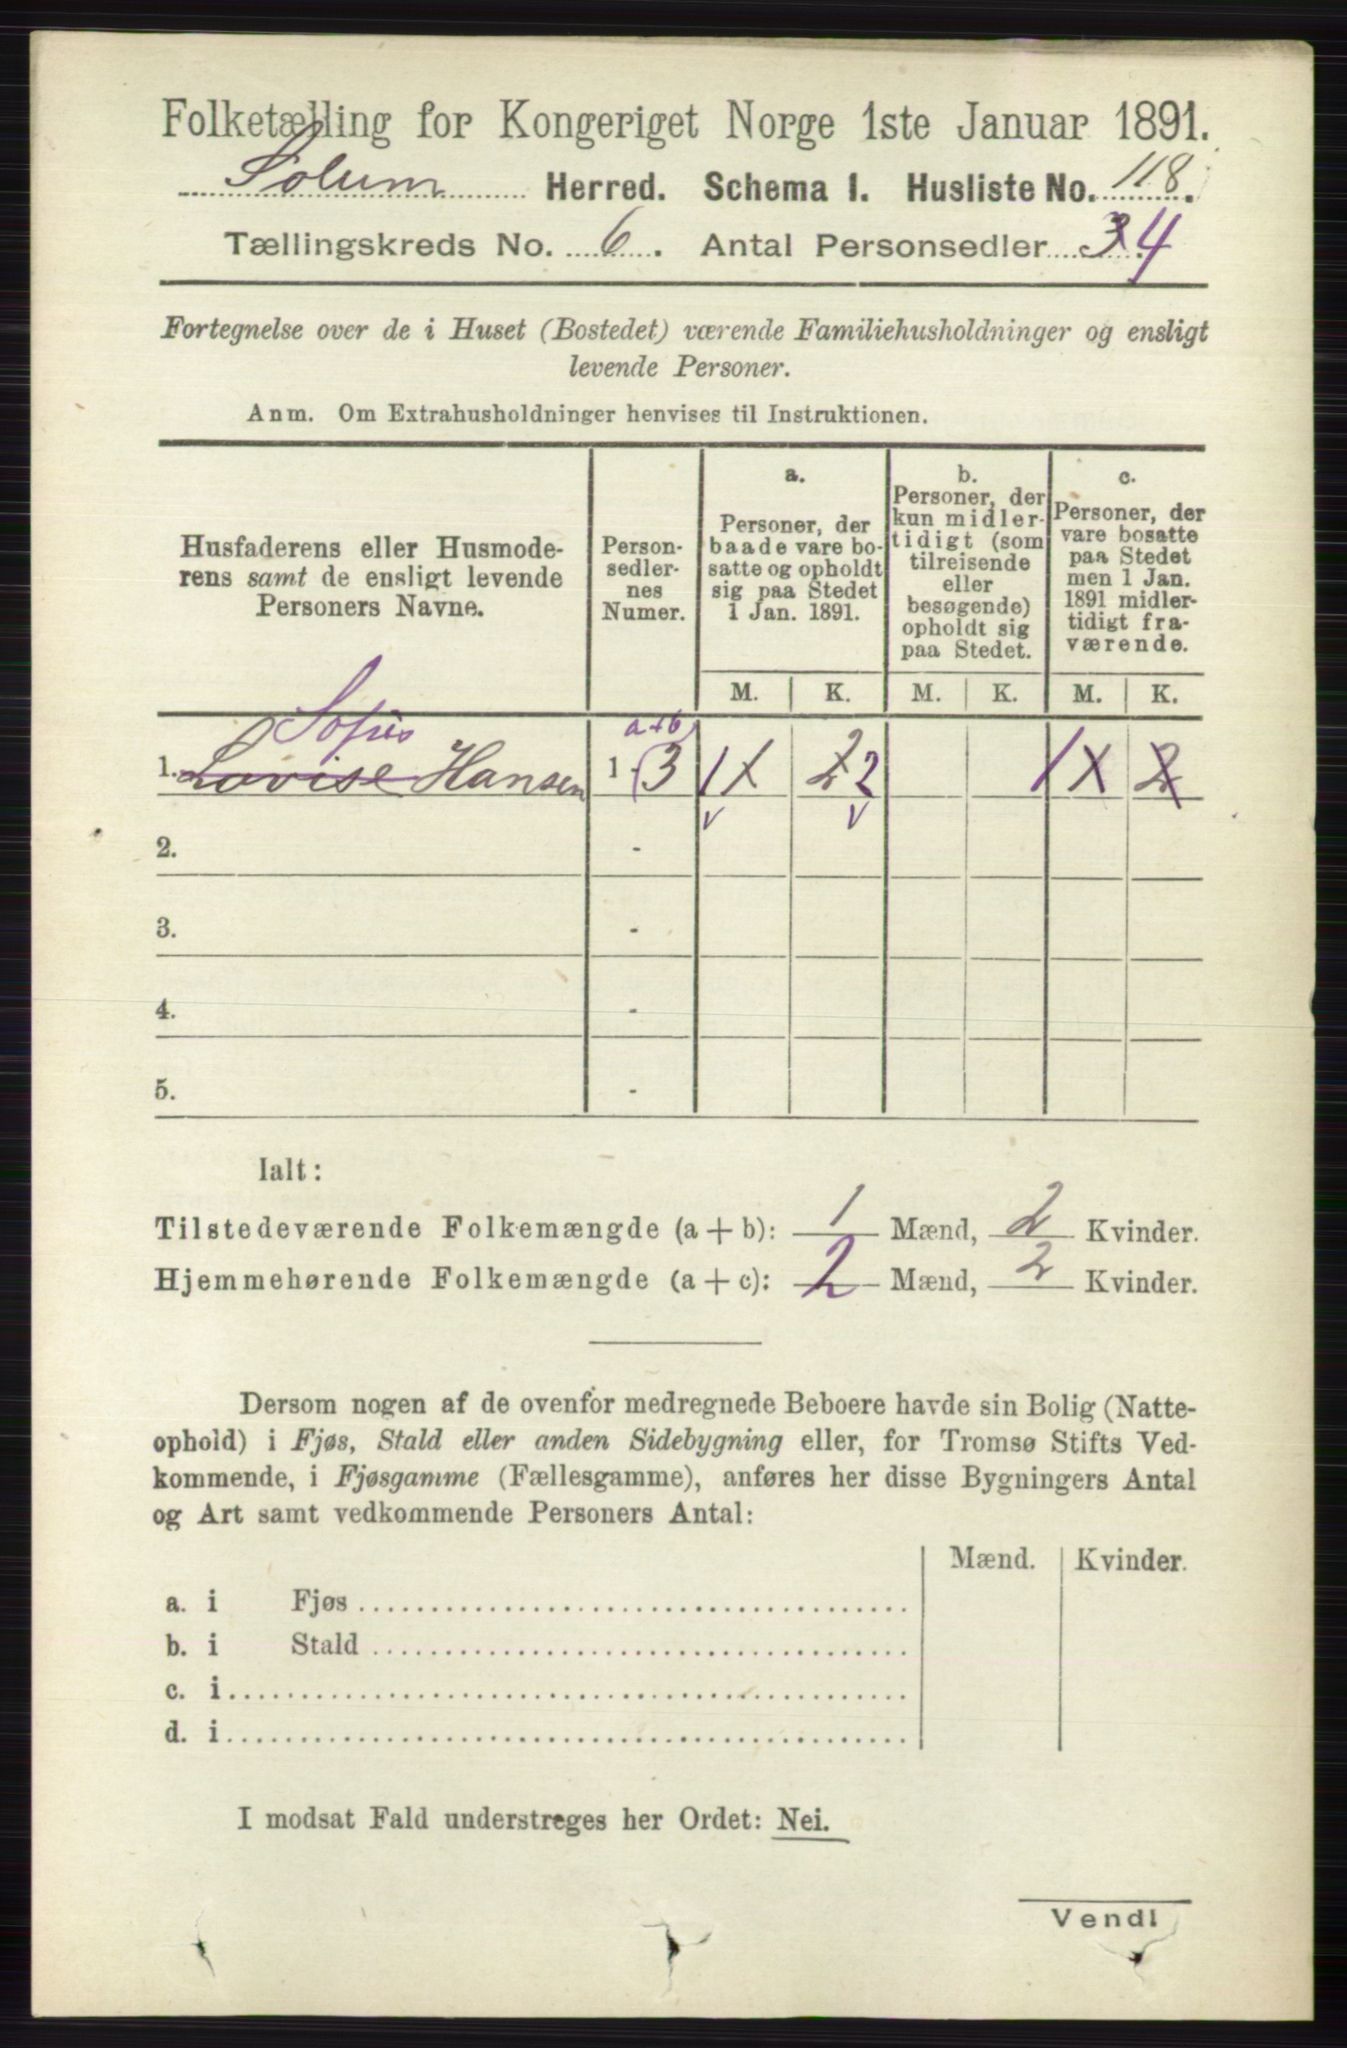 Folketælling for Kongeriget Norge 1ste Januar 1891.
Solum Herred. Schema I. Husliste No. 118.
Tællingskreds No. 6. Antal Personsedler 3 4
Fortegnelse over de i Huset (Bostedet) værende Familiehusholdninger og ensligt
levende Personer.
Anm. Om Extrahusholdninger henvises til Instruktionen.
Husfaderens eller Husmode-
rens samt de ensligt levende
Personers Navne.
Person-
sedler-
nes
Numer.
a.
Personer, der
baade vare bo-
satte og opholdt
sig paa Stedet
1 Jan. 1891.
b.
Personer, der
kun midler-
tidigt (som
tilreisende
eller
besøgende)
opholdt sig
paa Stedet.
c.
Personer, der
vare bosatte
paa Stedet
men 1 Jan.
1891 midler-
tidigt fra-
værende.
M. K. M. K. M. K.
Sofus a+b
1. Lovise Hansen 1 - 3 1 1 2 2 1 1 2
2. -
3. -
4. -
5. -
Ialt:
Tilstedeværende Folkemængde (a + b): 1 Mænd, 2 Kvinder.
Hjemmehørende Folkemængde (a + c): 2 Mænd, 2 Kvinder.
Dersom nogen af de ovenfor medregnede Beboere havde sin Bolig (Natte-
ophold) i Fjøs, Stald eller anden Sidebygning eller, for Tromsø Stifts Ved-
kommende, i Fjøsgamme (Fællesgamme), anføres her disse Bygningers Antal
og Art samt vedkommende Personers Antal:
Mænd. Kvinder.
a. i Fjøs
b. i Stald
c. i
d. i
I modsat Fald understreges her Ordet: Nei.
Vend!